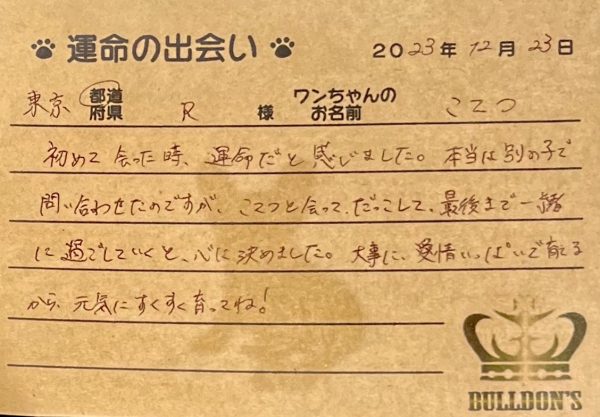 運命の出会い
2023年 12月 23日
東京 都道府県 R 様 ワンちゃんのお名前 こてつ
初めて会った時、運命だと感じました。本当は別の子で
問い合わせたのですが、こてつと会って、だっこして、最後まで一緒
に過ごしていくと、心に決めました。大事に、愛情いっぱいで育てる
から、元気にすくすく育ってね!
BULLDON'S